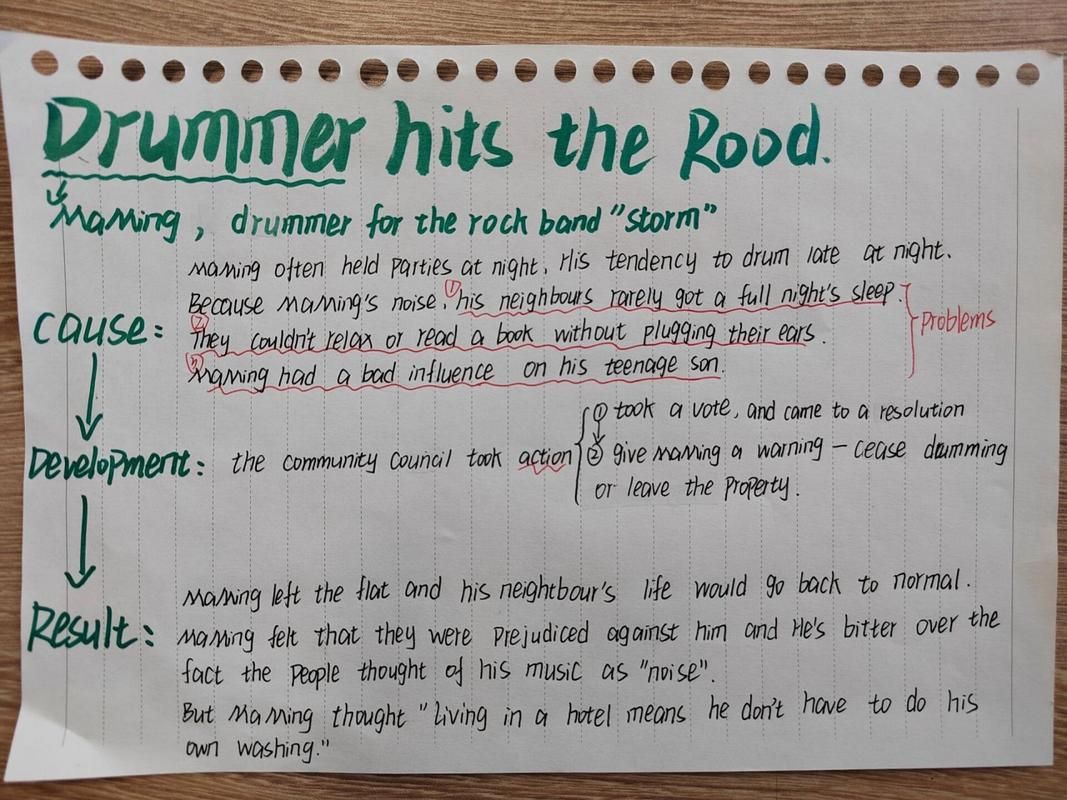 Drummer hits the Rood.
MaMing, drummer for the rock band "storm"
MaMing often held parties at night. His tendency to drum late at night.
Because MaMing's noise. ① his neighbours rarely got a full night's sleep.
cause:
② They couldn't relax or read a book without plugging their ears.
problems
③ MaMing had a bad influence on his teenage son.
① took a vote, and came to a resolution
Development: the community council took action
② give MaMing a warning — cease drumming
or leave the property.
MaMing left the flat and his neightbour's life would go back to normal.
Result: MaMing felt that they were prejudiced against him and He's bitter over the
fact the people thought of his music as "noise".
But MaMing thought "living in a hotel means he don't have to do his
own washing."